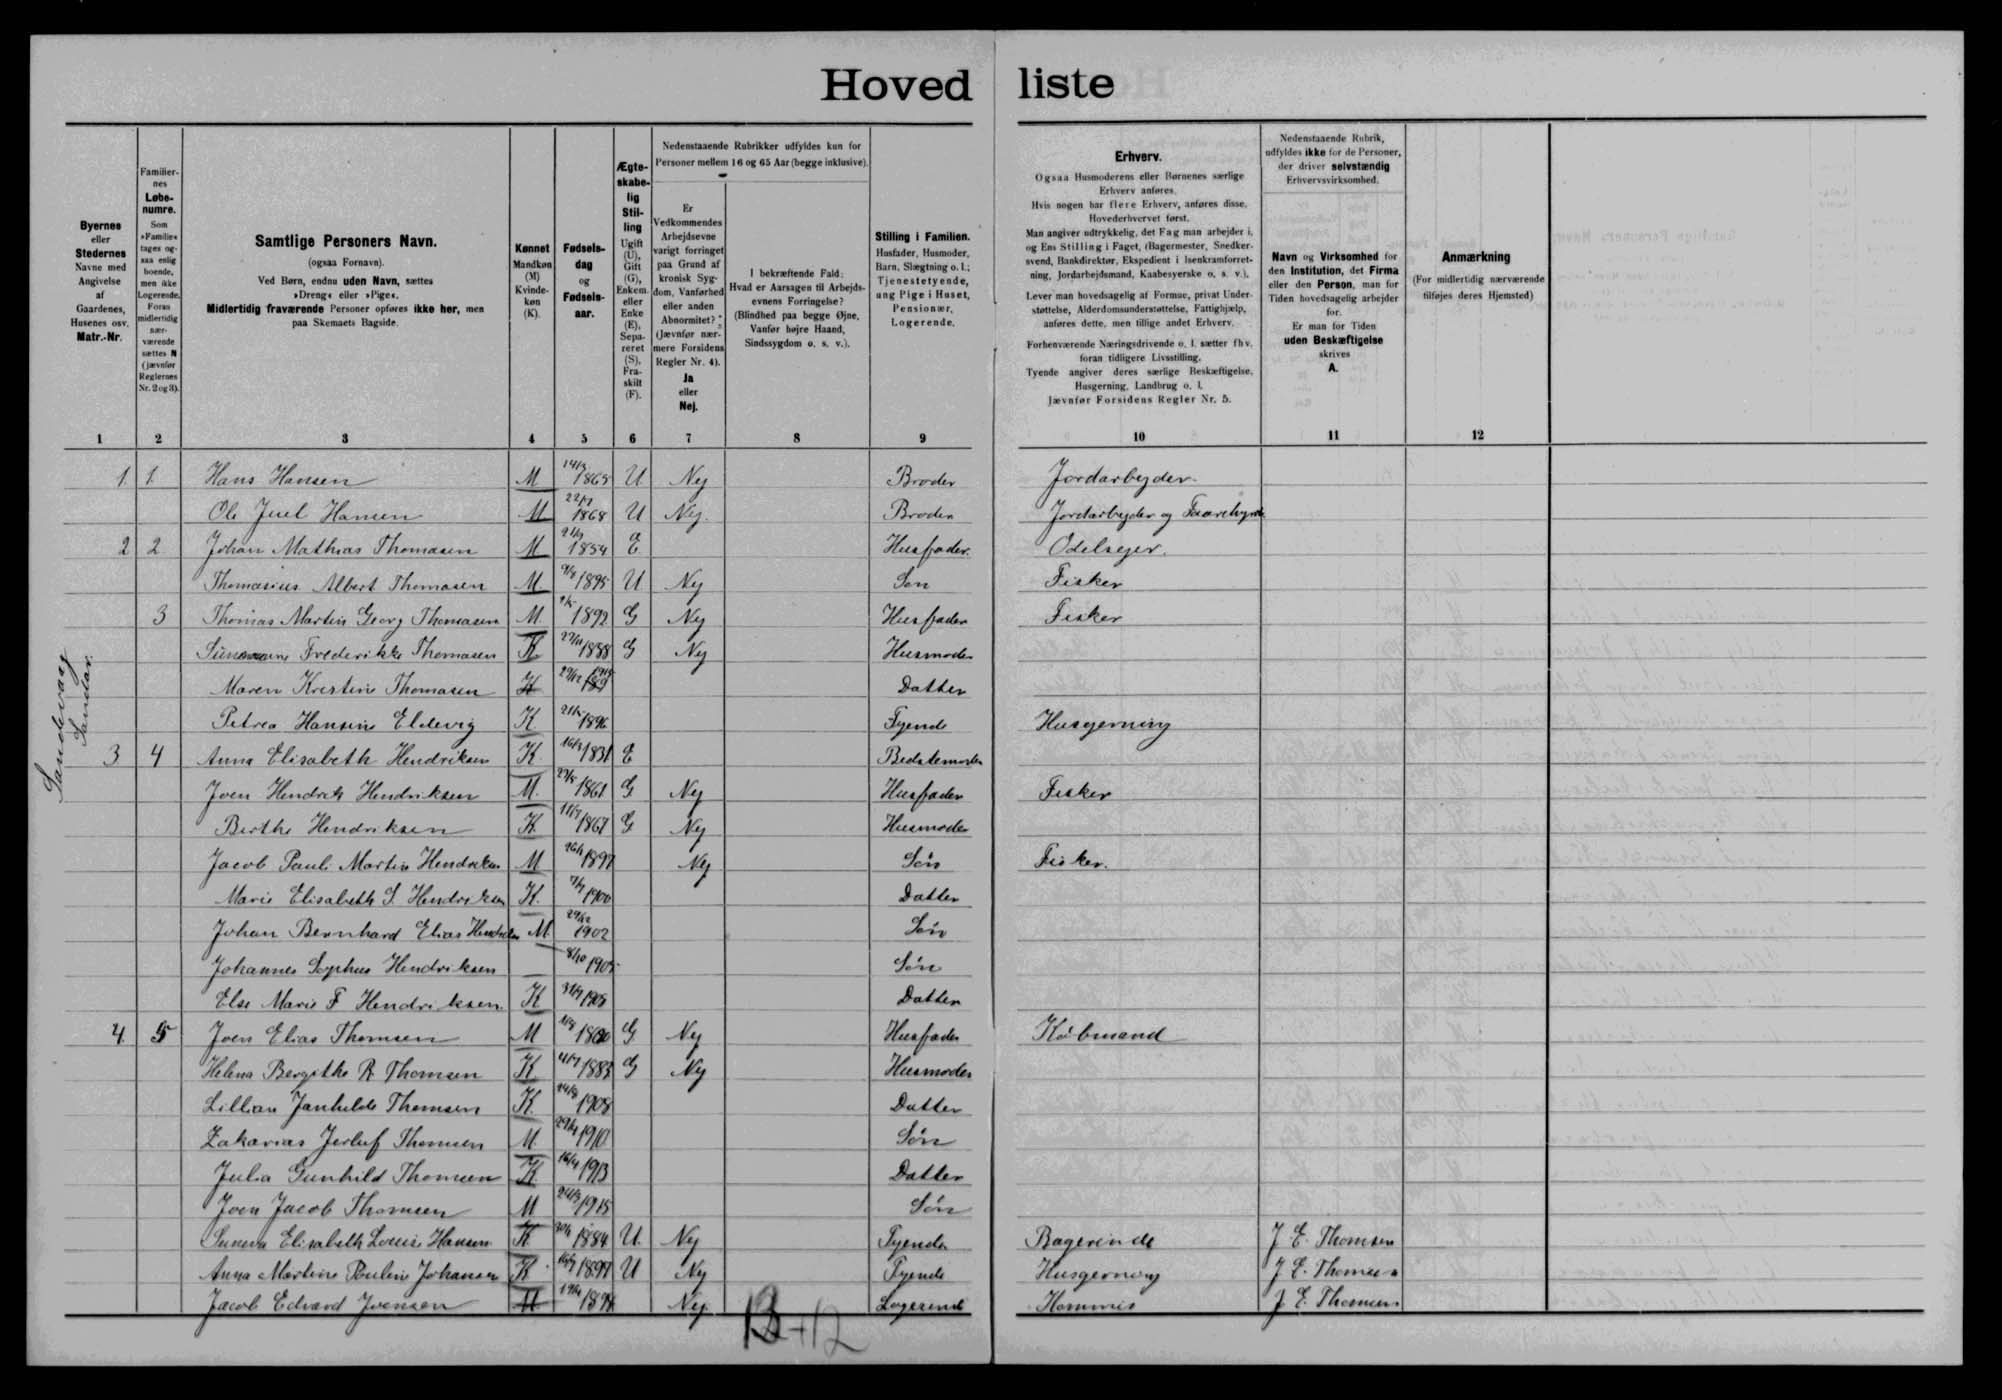 Hovedliste
Byernes eller Stedernes Navne med Angivelse af Gaardenes, Husenes osv. Matr.-Nr.
Familiernes Løbenumre. Som »Familie« tages ogsaa enlig boende, men ikke Logerende. Foran midlertidig nærværende sættes N (jævnfør Reglernes Nr. 2 og 3).
Samtlige Personers Navn. (ogsaa Fornavn). Ved Børn, endnu uden Navn, sættes »Dreng« eller »Pige«. Midlertidig fraværende Personer opføres ikke her, men paa Skemaets Bagside.
Kønnet Mandkøn (M) Kvindekøn (K).
Fødselsdag og Fødselsaar.
Ægteskabelig Stilling Ugift (U), Gift (G), Enkem. eller Enke (E), Separeret (S), Fraskilt (F).
Nedenstaaende Rubrikker udfyldes kun for Personer mellem 16 og 65 Aar (begge inklusive).
Er Vedkommendes Arbejdsevne varigt forringet paa Grund af kronisk Sygdom, Vanførhed eller anden Abnormitet? (Jævnfør nærmere Forsidens Regler Nr. 4). Ja eller Nej.
I bekræftende Fald: Hvad er Aarsagen til Arbejdsevnens Forringelse? (Blindhed paa begge Øjne, Vanfør højre Haand, Sindssygdom o. s. v.).
Stilling i Familien. Husfader, Husmoder, Barn, Slægtning o. l.; Tjenestetyende, ung Pige i Huset, Pensionær, Logerende.
Erhverv. Ogsaa Husmoderens eller Børnenes særlige Erhverv anføres. Hvis nogen har flere Erhverv, anføres disse, Hovederhvervet først. Man angiver udtrykkelig, det Fag man arbejder i, og Ens Stilling i Faget, (Bagermester, Snedkersvend, Bankdirektør, Ekspedient i Isenkramforretning, Jordarbejdsmand, Kaabesyerske o. s. v.). Lever man hovedsagelig af Formue, privat Understøttelse, Alderdomsunderstøttelse, Fattighjælp, anføres dette, men tillige andet Erhverv. Forhenværende Næringsdrivende o. l. sætter fhv. foran tidligere Livsstilling. Tyende angiver deres særlige Beskæftigelse, Husgerning, Landbrug o. l. Jævnfør Forsidens Regler Nr. 5.
Nedenstaaende Rubrik, udfyldes ikke for de Personer, der driver selvstændig Erhvervsvirksomhed.
Navn og Virksomhed for den Institution, det Firma eller den Person, man for Tiden hovedsagelig arbejder for. Er man for Tiden uden Beskæftigelse skrives A.
Anmærkning (For midlertidig nærværende tilføjes deres Hjemsted)
1 2 3 4 5 6 7 8 9 10 11 12
Sandevaag Sandar.
1. 1. Hans Hansen M 1865 U Nej Broder Jordarbejder.
Ole Juel Hansen M 1868 U Nej. Broder Jordarbejder og
2 2 Johan Mathias Thomasen M 1854 E Husfader. Odelsejer.
Thomasius Albert Thomasen M 1895 U Nej Søn Fisker
3 Thomas Martin Georg Thomasen M. 1892 G Nej Husfader Fisker
Frederikke Thomasen K 1888 G Nej Husmoder
Maren Kristine Thomasen K 29/12 Datter
Petrea Hansine Eldevig K 1896 Tyende Husgerning
3 4 Anna Elisabeth Hendriksen K. 1831 E Bedstemoder
Joen Hendrik Hendriksen M. 1861 G Nej Husfader Fisker
Birthe Hendriksen K. 1867 G Nej Husmoder
Jacob Pauli Martin Hendriksen M 1897 Nej Søn Fisker.
Marie Elisabeth S. Hendriksen K. 1900 Datter
Johan Bernhard Elias Hendriksen M. 29/12 1902 Søn
Johannes Sophus Hendriksen 8/10 1905 Søn
Else Marie F Hendriksen K 1908 Datter
4. 5 Joen Elias Thomsen M 1880 G Nej Husfader Købmand
Helena Bergithe R Thomsen K 1883 G Nej Husmoder
Lillian Janhilde Thomsen K. 1908 Datter
Zakarias Jerluf Thomsen M. 1910 Søn
Julia Gunhild Thomsen K. 16/4 1913 Datter
Joen Jacob Thomsen M 1915 Søn
Sunneva Elisabeth Louise Hansen K 1884 U. Nej Tyende Bagerinde J. E. Thomsen
Anna Martine Pouline Johansen K. 1897 U Nej Tyende Husgerning J. E. Thomsen
Jacob Edvard Joensen M Nej. Logerende Kommis J. E. Thomsen
13+12